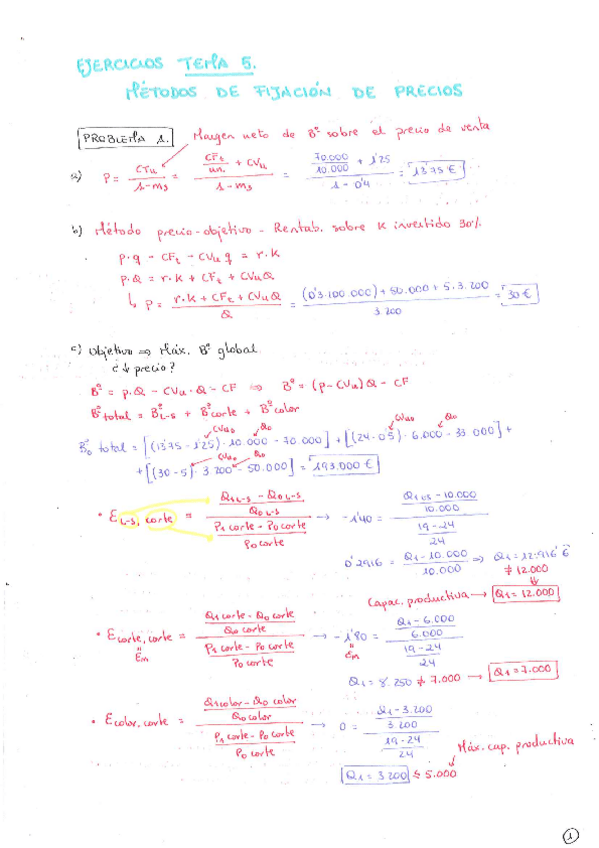 EJERCICIOS TEMA 5.
MÉTODOS DE FIJACIÓN DE PRECIOS
PROBLEMA 1. Margen neto de Bº sobre el precio de venta
a) P = CTu / 1-mg = (CFt/un. + CVu) / 1-mg = (70.000/10.000 + 1'25) / 1-0'4 = 13'75 €
b) Método precio-objetivo - Rentab. sobre K invertido 30%
p·q - CFt - CVu q = r·K
p·Q = r·K + CFt + CVuQ
↳ p = (r·K + CFt + CVuQ) / Q = ((0'3·100.000) + 50.000 + 5·3.200) / 3.200 = 30 €
c) Objetivo ⇒ Máx. Bº global
¿↓ precio?
Bº = p·Q - CVu·Q - CF ⇒ Bº = (p-CVu)Q - CF
Bº total = BºL-S + Bºcorte + Bºcolor
CVu₀ Q₀ CVu₀ Q₀
Bº₀ total = [(13'75-1'25)·10.000 - 70.000] + [(24-0'5)·6.000 - 33.000] +
CVu₀ Q₀
+ [(30-5)·3.200 - 50.000] = 193.000 €
• ƐL-S, corte = ((Q1 L-S - Q0 L-S) / Q0 L-S) / ((P1 corte - P0 corte) / P0 corte) → -1'40 = ((Q1 LS - 10.000) / 10.000) / ((19-24) / 24)
0'2916 = (Q1 - 10.000) / 10.000 ⇒ Q1 = 12.916'6̂
≠ 12.000
Capac. productiva → Q1 = 12.000
• Ɛcorte, corte = ((Q1 corte - Q0 corte) / Q0 corte) / ((P1 corte - P0 corte) / P0 corte) → -1'80 = ((Q1 - 6.000) / 6.000) / ((19-24) / 24)
Ɛm Ɛm
Q1 = 8.250 ≠ 7.000 → Q1 = 7.000
• Ɛcolor, corte = ((Q1 color - Q0 color) / Q0 color) / ((P1 corte - P0 corte) / P0 corte) → 0 = ((Q1 - 3.200) / 3.200) / ((19-24) / 24)
Máx. cap. productiva
Q1 = 3.200 ≤ 5.000
1